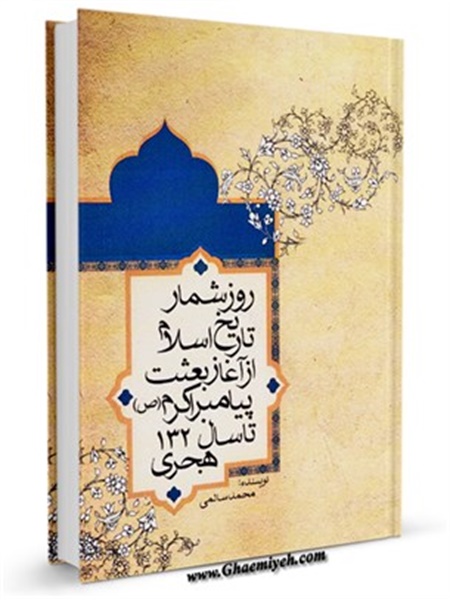 روز شمار
تاریخ اسلام
از آغاز بعثت
پیامبر اکرم (ص)
تا سال ۱۳۲
هجری
نویسنده:
محمد سالمی
www.Ghaemiyeh.com